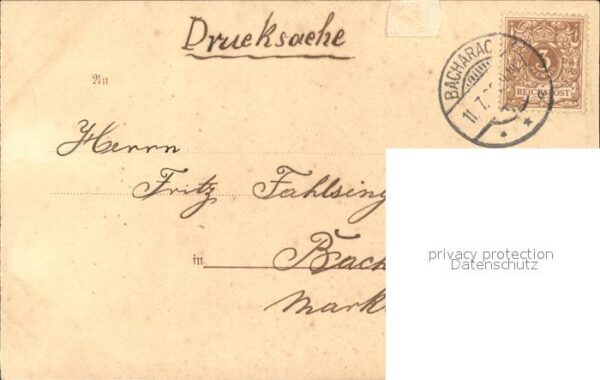 Drucksache
BACHARAC
11.7.
3
REICHSPOST
An
Herrn
Fritz Fahlsing
in Bach
Mark
privacy protection
Datenschutz